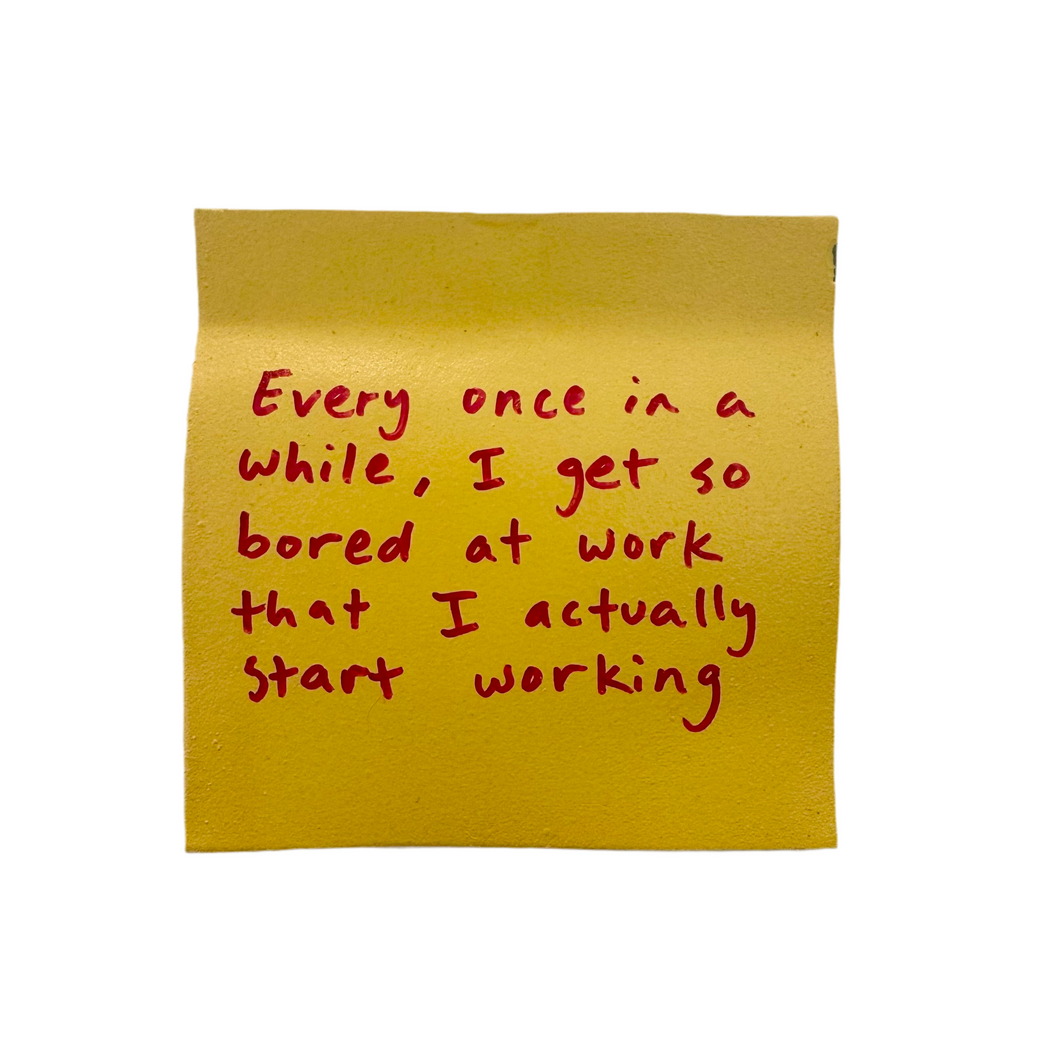 Every once in a
while, I get so
bored at work
that I actually
start working